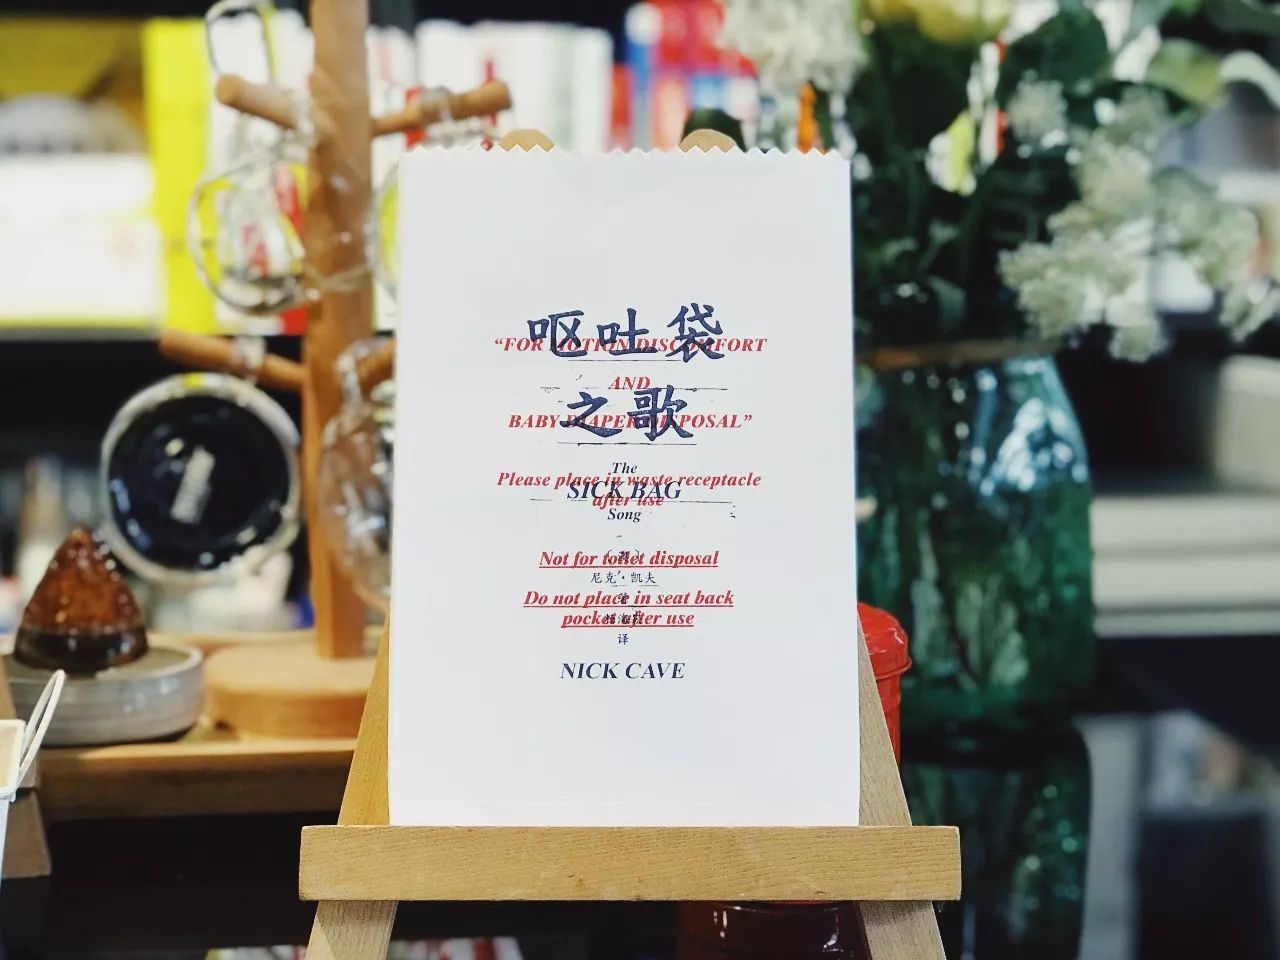 呕吐袋
“FOR MOTION DISCOMFORT
AND
之歌
BABY DIAPER DISPOSAL”
The
Please place in waste receptacle
SICK BAG
after use
Song
Not for toilet disposal
尼克·凯夫
Do not place in seat back
pocket after use
译
NICK CAVE